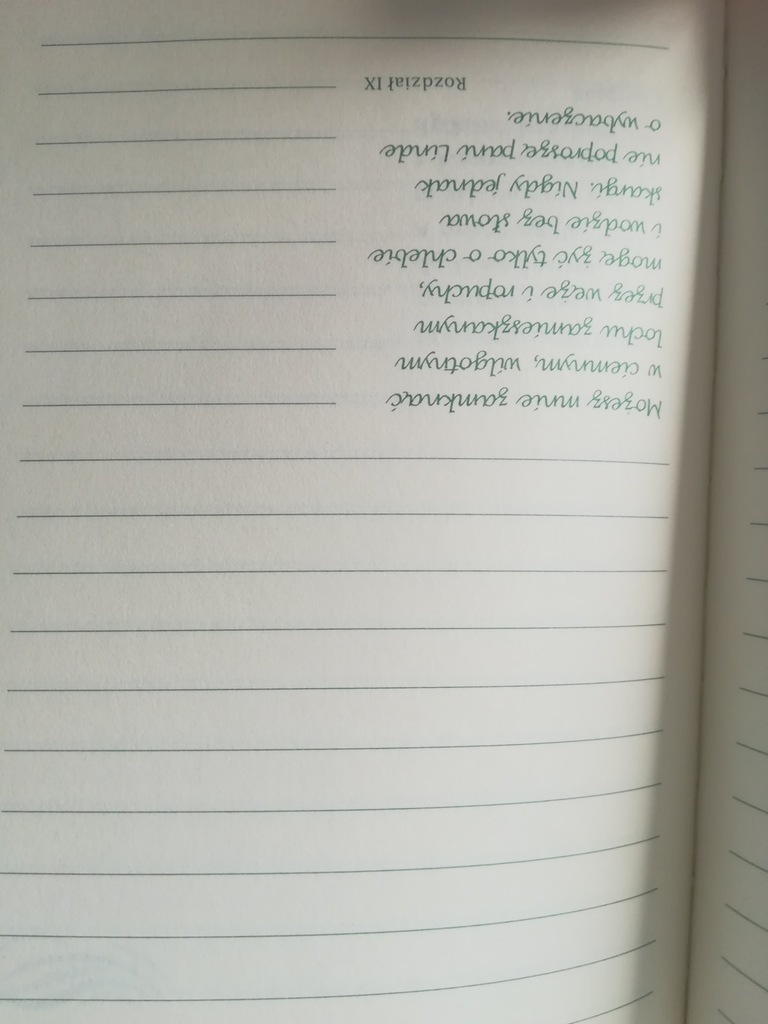 Możesz mnie zamknąć
w ciemnym, wilgotnym
lochu zamieszkanym
przez węże i ropuchy,
mogę żyć tylko o chlebie
i wodzie bez słowa
skargi. Nigdy jednak
nie poproszę pani Linde
o wybaczenie.
Rozdział IX